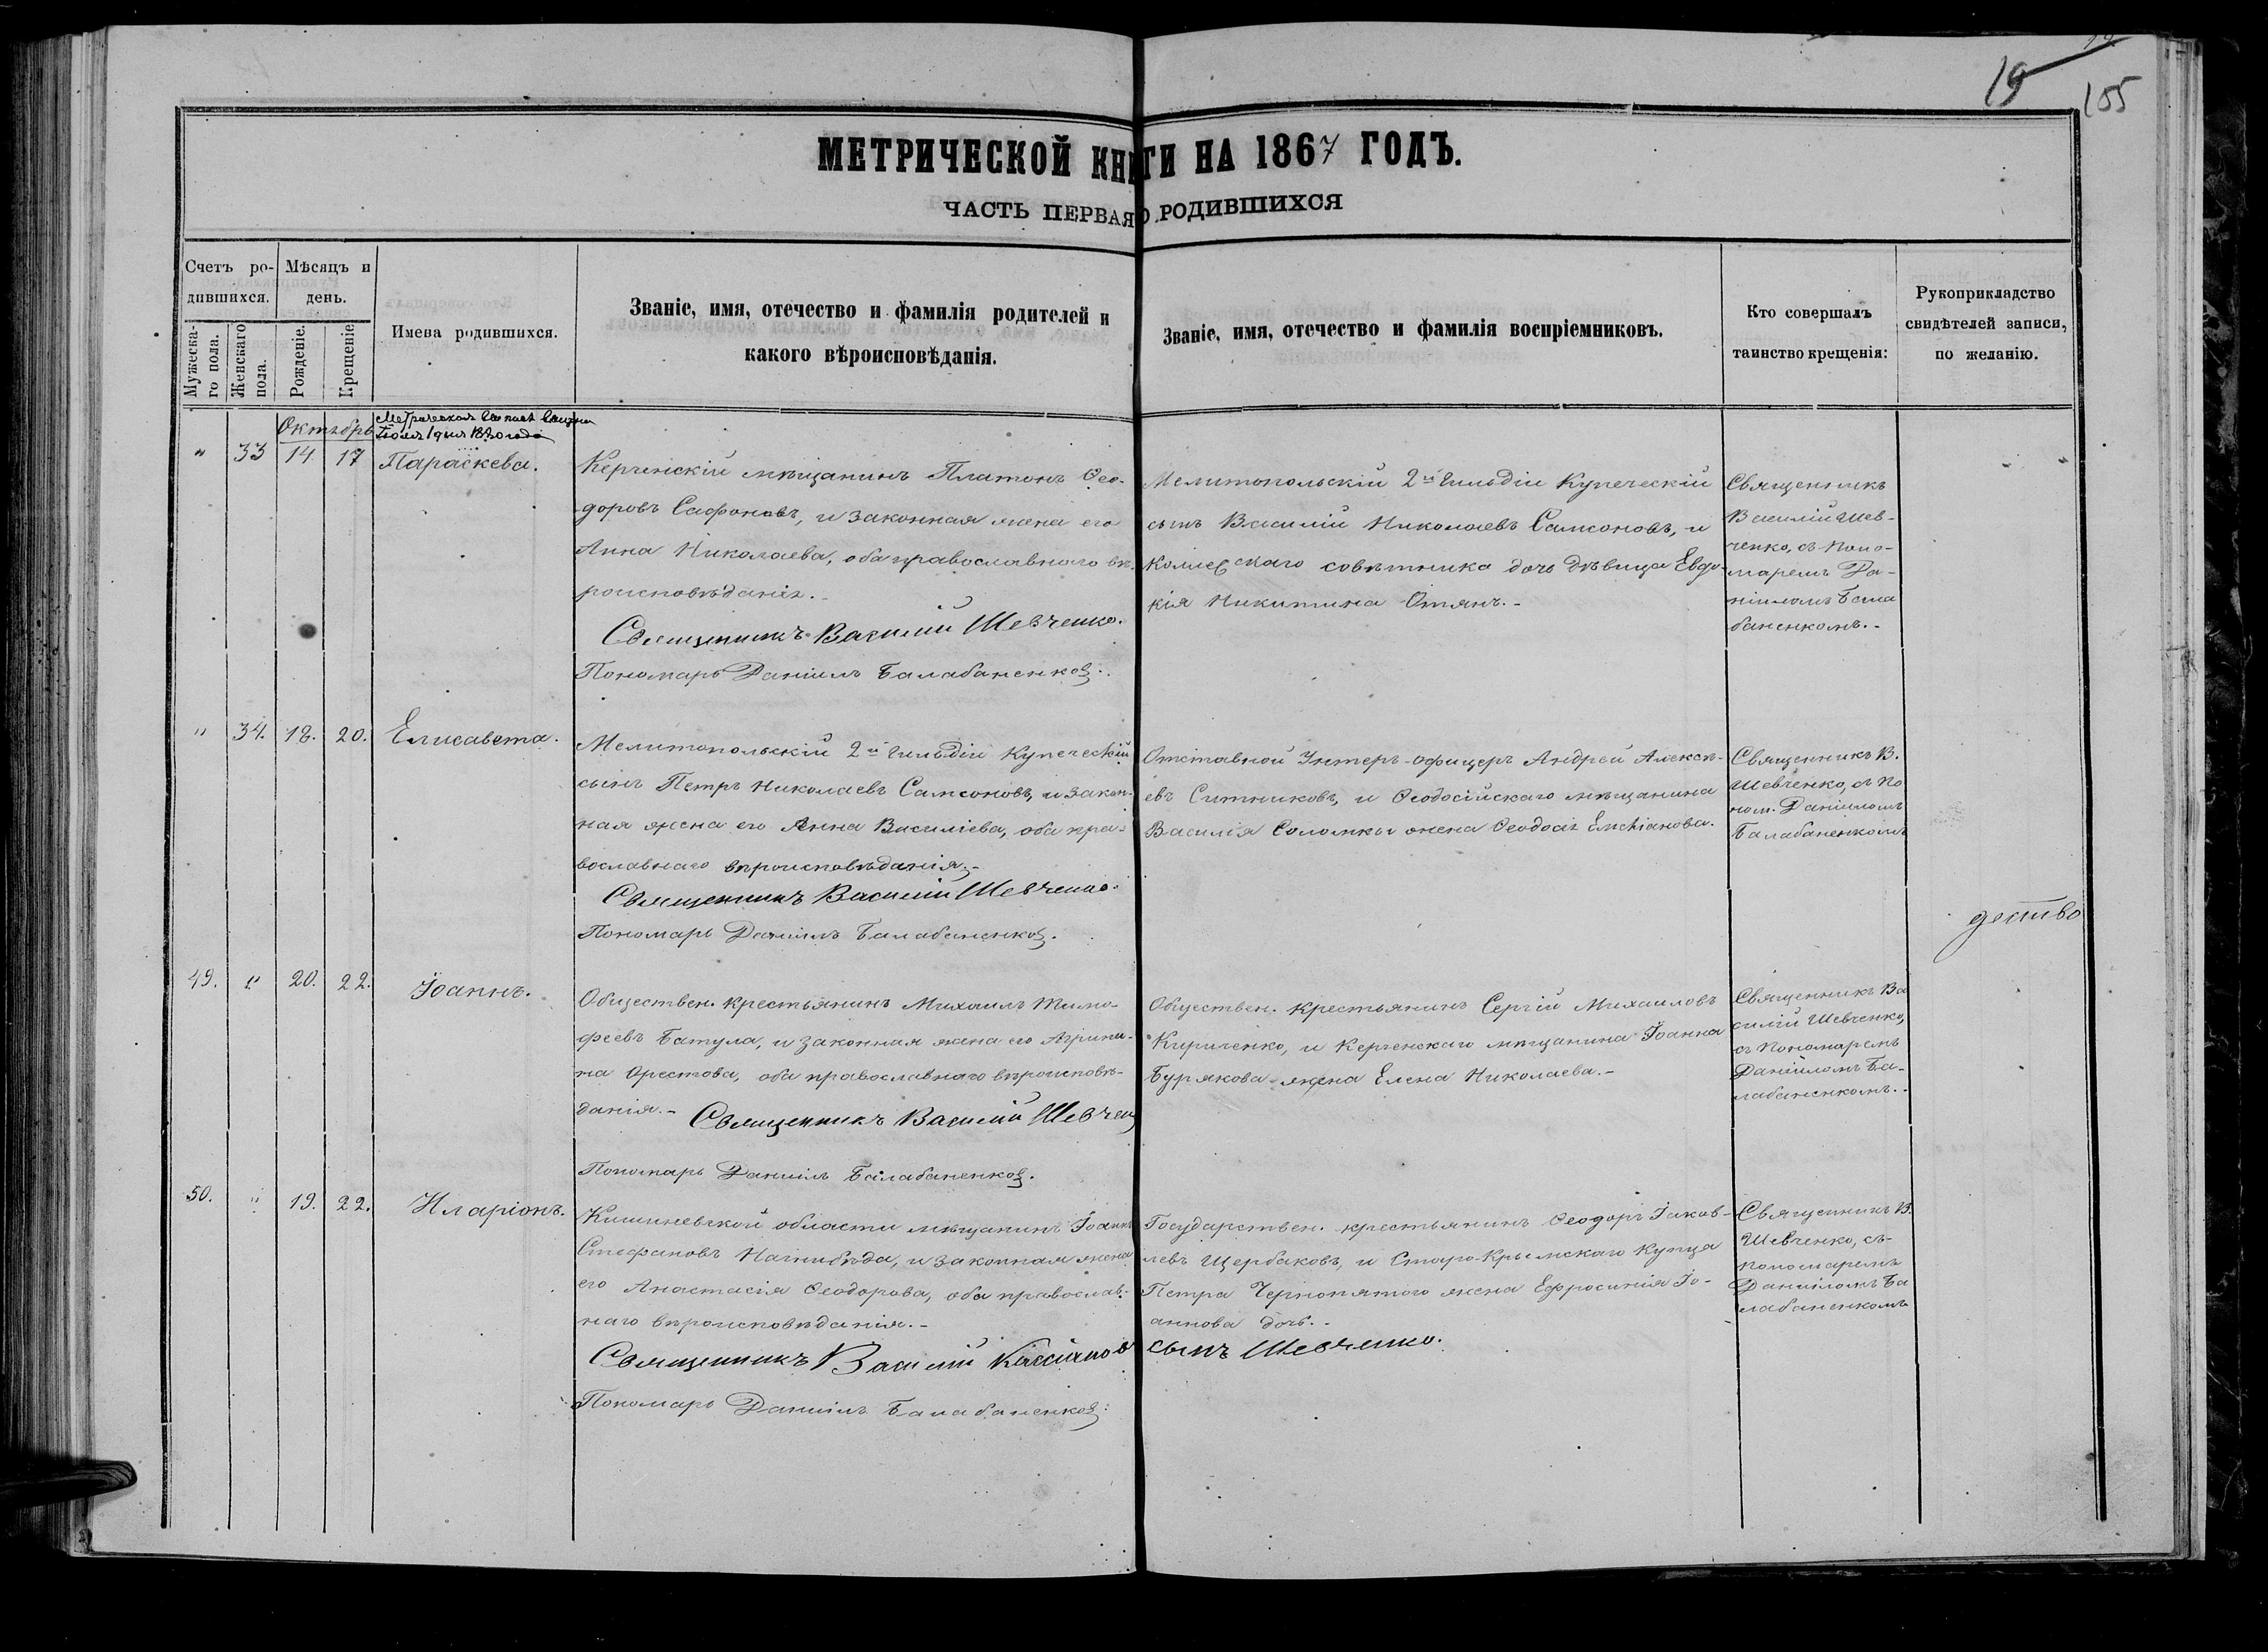 19
155
МЕТРИЧЕСКОЙ КНИГИ НА 1867 ГОДЪ.
ЧАСТЬ ПЕРВАЯ О РОДИВШИХСЯ
Счетъ ро-
дившихся.
Мужеска-
го пола.
Женскаго
пола.
Мѣсяцъ и
день.
Рожденіе.
Крещеніе
Имена родившихся.
Званіе, имя, отечество и фамилія родителей и
какого вѣроисповѣданія.
Званіе, имя, отечество и фамилія воспріемниковъ.
Кто совершалъ
таинство крещенія:
Рукоприкладство
свидѣтелей записи,
по желанію.
Октябрь
" 33 14 17 Параскева.
Керченскій мѣщанинъ Платонъ Ѳео-
доровъ Сафоновъ, и законная жена его
Анна Николаева, оба православнаго вѣ-
роисповѣданія.-
Священникъ Василій Шевченко.
Пономарь Даніилъ Балабаненковъ.
Мелитопольскій 2й Гильдіи Купеческій
сынъ Василій Николаевъ Самсоновъ, и
Коллежскаго совѣтника дочь дѣвица Евдо-
кія Никитина Отянъ.-
Священникъ
Василій Шев-
ченко, съ поно-
маремъ Да-
ніиломъ Бала
баненкомъ.-
" 34. 18. 20. Елисавета.
Мелитопольскій 2й Гильдіи Купеческій
сынъ Петръ Николаевъ Самсоновъ, и закон-
ная жена его Анна Василіева, оба пра-
вославнаго вѣроисповѣданія.-
Священникъ Василій Шевченко.
Пономарь Даніилъ Балабаненковъ.
Отставной Унтеръ-офицеръ Андрей Алексѣ-
евъ Ситниковъ, и Ѳеодосійскаго мѣщанина
Василія Соломки жена Ѳеодосія
Священникъ В.
Шевченко, съ По
ном. Даніиломъ
Балабаненкомъ
дество
49. " 20. 22. Іоаннъ.
Обществен. крестьянинъ Михаилъ Тимо-
феевъ Батула, и законная жена его Агрипи-
на Орестова, оба православнаго вѣроисповѣ-
данія.- Священникъ Василій Шевчен
Пономарь Даніилъ Балабаненковъ.
Обществен. крестьянинъ Сергій Михаиловъ
Кириченко, и Керченскаго мѣщанина Іоанна
Бурякова жена Елена Николаева.-
Священникъ Ва
силій Шевченко,
съ Пономаремъ
Даніиломъ Ба-
лабаненкомъ.-
50. " 19. 22. Иларіонъ.
Кишиневской области мѣщанинъ Іоаннъ
Стефановъ Нагнибѣда, и законная жена
его Анастасія Ѳеодорова, оба православ-
наго вѣроисповѣданія.-
Священникъ Василій Кассіановъ сынъ Шевченко.
Пономарь Даніилъ Балабаненковъ.
Государствен. крестьянинъ Ѳеодоръ Іаков-
левъ Щербаковъ, и Старо-Крымскаго Купца
Петра Чернопятого жена Ефросинія Іо-
аннова дочь.-
Священникъ В.
Шевченко, съ
пономаремъ
Даніиломъ Ба
лабаненкомъ